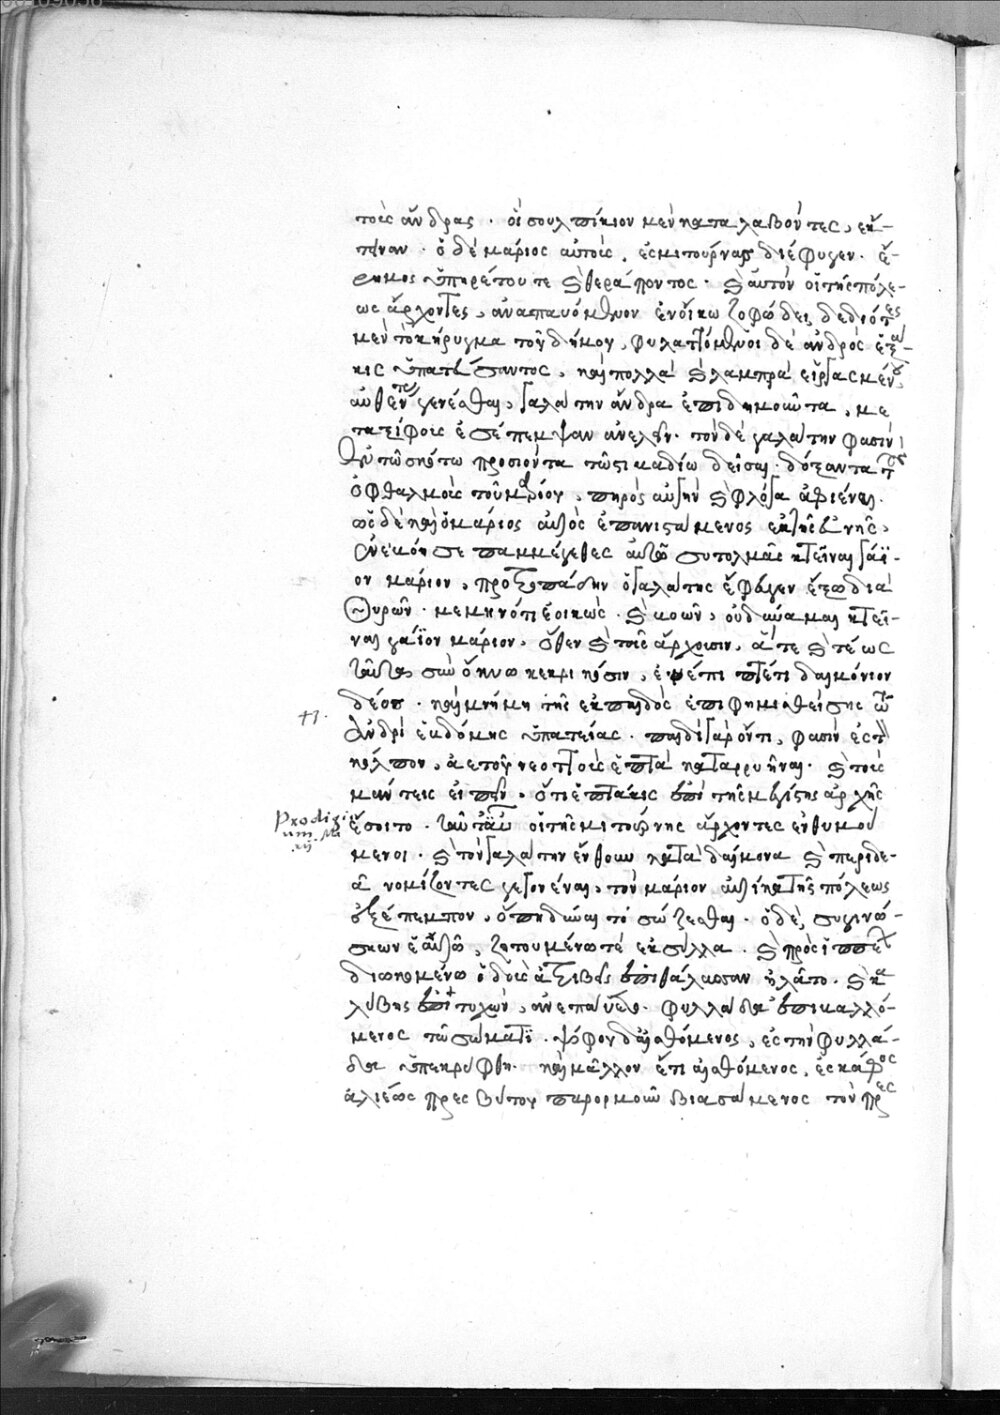 τοὺς ἄνδρας. οἱ σουλπίκιον μὲν καταλαβόντες, ἔκ-
τειναν. ὁ δὲ μάριος αὐτοὺς, ἐς μιτούρνας διέφυγεν. ἔ-
ρημος ὑπηρέτου τε καὶ θεράποντος. καὶ αὐτὸν οἱ τῆς πόλε-
ως ἄρχοντες, ἀναπαυόμενον ἐν οἴκῳ ζοφώδει δεδιότες
μὲν τὸ κήρυγμα τοῦ δήμου, φυλαττόμενοι δὲ ἀνδρὸς ἑξά-
κις ὑπατεύσαντος, καὶ πολλὰ καὶ λαμπρὰ εἰργασμένου,
αὐθένται γενέσθαι, γαλάτην ἄνδρα ἐπιδημοῦντα, με
τὰ ξίφους ἐσέπεμψαν ἀνελεῖν. τὸν δὲ γαλάτην φασὶν
ἐν τῷ σκότῳ προσιόντα τῷ στιβαδίῳ δεῖσαι. δόξαντα τοὺς
ὀφθαλμοὺς τοῦ μαρίου, πυρὸς αὐγὴν καὶ φλόγα ἀφιέναι.
ὡς δὲ καὶ ὁ μάριος αὐτὸς ἐπανιστάμενος ἐκ τῆς εὐνῆς,
ἀνέκραγε παμμέγεθες αὐτῷ σὺ τολμᾷς κτεῖναι γάϊ-
ον μάριον, προτροπάδην ὁ γαλάτης ἔφευγεν ἔξω διὰ
θυρῶν. μεμηνότι ἐοικώς. καὶ βοῶν, οὐ δύναμαι κτεῖ-
ναι γάϊον μάριον. ὅθεν καὶ τοῖς ἄρχουσιν, ἅτε καὶ τέως
ταῦτα σὺν ὄκνῳ κεκρικόσιν, ἐνέπιπτέ τι δαιμόνιον
δέος. καὶ μνήμη τῆς ἐκ παιδὸς ἐπιφημισθείσης τῷ
ἀνδρὶ ἑβδόμης ὑπατείας. παιδὶ γὰρ ὄντι, φασὶν ἐς τὸν
κόλπον, ἀετοῦ νεοττοὺς ἑπτὰ καταρρυῆναι. καὶ τοὺς
μάντεις εἰπεῖν. ὅτι ἑπτάκις ἐπὶ τῆς μεγίστης ἀρχῆς
Prodigi ἔσοιτο. ταῦτ' οὖν οἱ τῆς μιτούρνης ἄρχοντες ἐνθυμού
um Ma
rij μενοι. καὶ τὸν γαλάτην ἔνθουν κατὰ δαίμονα καὶ περιδε-
ᾶ νομίζοντες γεγονέναι, τὸν μάριον αὐτίκα τῆς πόλεως
ἐξέπεμπον, ὅπη δύναιτό σώζεσθαι. ὁ δὲ, συγινώ-
σκων ἑαυτῷ, ζητουμένῳ τε ἐκ σύλλα. καὶ πρὸς ἱππέων
διωκομένῳ ὁδοὺς ἀτριβεῖς ἐπὶ θάλασσαν ἠλᾶτο. καὶ κα
λύβης ἐπιτυχὼν, ἀνεπαύετο. φυλλάδα ἐπιβαλλό-
μενος τῷ σώματι. ψόφου δ' αἰσθόμενος, ἐς τὴν φυλλά-
δα ὑπεκρύφθη. καὶ μᾶλλον ἔτι αἰσθόμενος, ἐς σκάφος
ἁλιέως πρεσβύτου παρορμοῦν βιασάμενος τὸν πρες